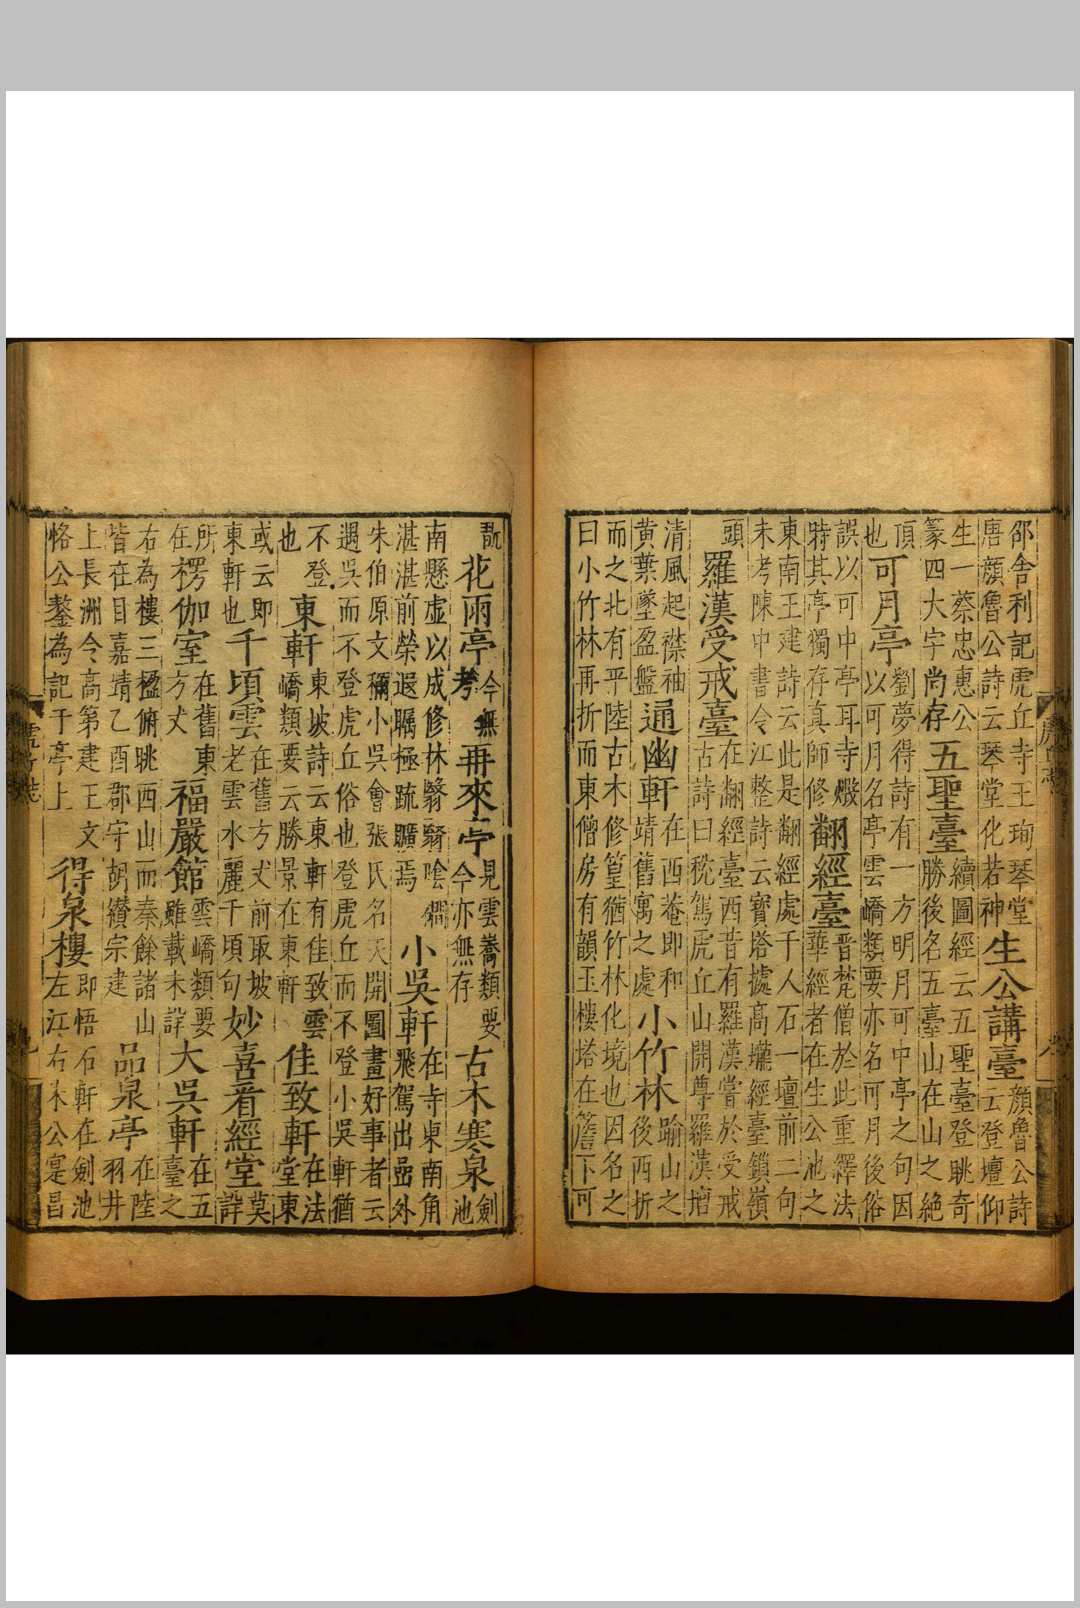 邵舍利記虎丘寺王珣琴堂唐顏魯公詩云琴堂化若神生公講臺顏魯公詩云登壇仰
生一蔡忠惠公篆四大字尚存五聖臺續圖經云五聖臺登眺奇勝後名五臺山在山之絕
頂也可月亭劉夢得詩有一方明月可中亭之句因以可月名亭雲嶠類要亦名可月後俗
誤以可中亭耳寺燬時其亭獨存真師修翻經臺晉梵僧於此重繹法華經者在生公池之
東南王建詩云此是翻經處千人石一壇前二句未考陳中書令江整詩云寶塔據高壠經臺鎖嶺
頭羅漢受戒臺在翻經臺西昔有羅漢嘗於受戒古詩曰稅駕虎丘山開尊羅漢壇
清風起襟袖黃葉墜盈盤通幽軒在西菴即和靖舊寓之處小竹林踰山之後西折
而之北有平陸古木修篁猶竹林化境也因名之曰小竹林再折而東僧房有韻玉樓塔在簷下可
翫花雨亭今無考再來亭見雲嶠類要今亦無存古木寒泉劍池
南懸虛以成修林翳翳喰澗湛湛前榮遐矚極疏曠焉小吳軒在寺東南角飛駕出嵒外
朱伯原文稱小吳會張氏名天開圖畫好事者云遇吳而不登虎丘俗也登虎丘而不登小吳軒猶
不登也東軒東坡詩云東軒有佳致雲嶠類要云勝景在東軒佳致軒在法堂東
或云即東軒也千頃雲在舊方丈前取坡老雲水麗千頃句妙喜看經堂莫詳
所在楞伽室在舊東方丈福嚴館雲嶠類要雖載未詳大吳軒在五臺之
右為樓三楹俯眺西山而秦餘諸山皆在目嘉靖乙酉郡守胡纘宗建品泉亭在陸羽井
上長洲令高第建王文恪公鏊為記于亭上得泉樓即悟石軒在劍池左江右朱公寔昌